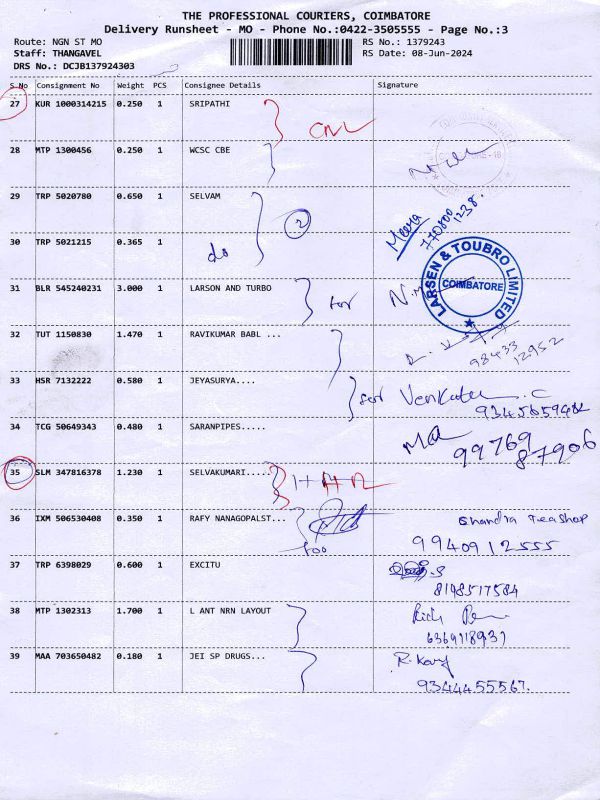 THE PROFESSIONAL COURIERS, COIMBATORE
Delivery Runsheet - MO - Phone No.:0422-3505555 - Page No.:3
Route: NGN ST MO
RS No.: 1379243
Staff: THANGAVEL
RS Date: 08-Jun-2024
DRS No.: DCJB137924303
S No Consignment No Weight PCS Consignee Details Signature
27 KUR 1000314215 0.250 1 SRIPATHI
28 MTP 1300456 0.250 1 WCSC CBE
29 TRP 5020780 0.650 1 SELVAM
Meena
770800
1238.
2
30 TRP 5021215 0.365 1
do
LARSEN & TOUBRO LIMITED
COIMBATORE
31 BLR 545240231 3.000 1 LARSON AND TURBO
for
32 TUT 1150830 1.470 1 RAVIKUMAR BABL ...
98433
12952
33 HSR 7132222 0.580 1 JEYASURYA....
Venkate C
34 TCG 50649343 0.480 1 SARANPIPES.....
99769
87906
35 SLM 347816378 1.230 1 SELVAKUMARI.....
36 IXM 506530408 0.350 1 RAFY NANAGOPALST...
Chandra Teashop
9940912555
37 TRP 6398029 0.600 1 EXCITU
8198517584
38 MTP 1302313 1.700 1 L ANT NRN LAYOUT
6369118937
39 MAA 703650482 0.180 1 JEI SP DRUGS...
9344455567.